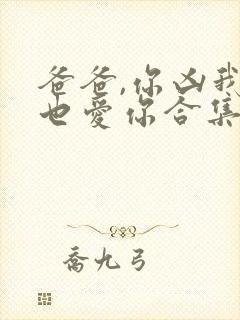 爸爸,你凶我
也爱你合集
乔九弓